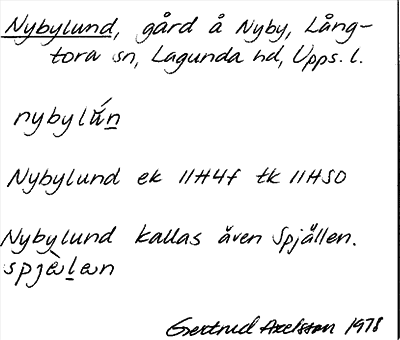 Nybylund, gård å Nyby, Lång-
tora sn, Lagunda hd, Upps. l.
nybylú̆n
Nybylund ek 11H4f tk 11HSO
Nybylund kallas även Spjällen.
spjæ̀lən
Gertrud Axelsson 1978